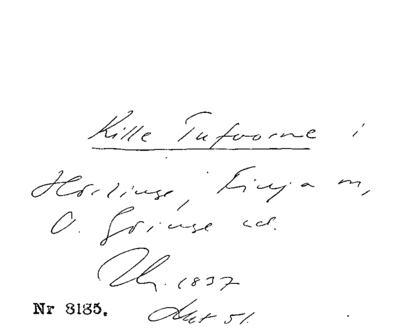 Kille Tufvorne i
Hörlinge, Finja m,
O. Göinge hd.
Th. 1837
Nr 8185. Akt 51.